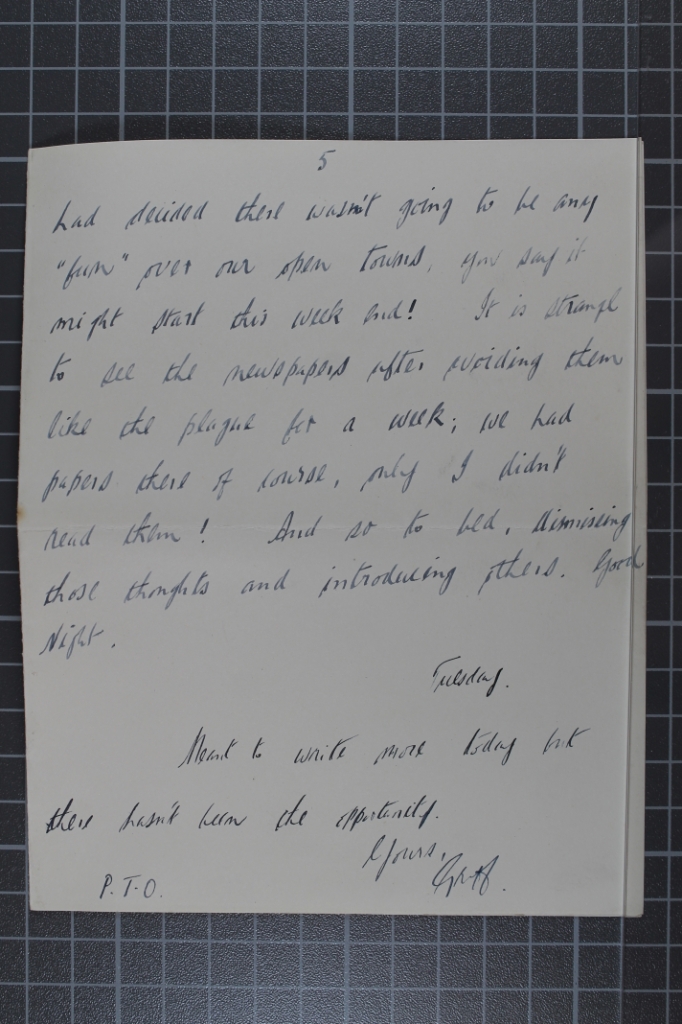 5
had decided there wasn't going to be any
"fun" over our open towns, you say it
might start this week end! It is strange
to see the newspapers after avoiding them
like the plague for a week; we had
papers there of course, only I didn't
read them! And so to bed, dismissing
those thoughts and introducing others. Good
Night.
Tuesday.
Meant to write more today but
there hasn't been the opportunity.
Yours,
P.T.O.